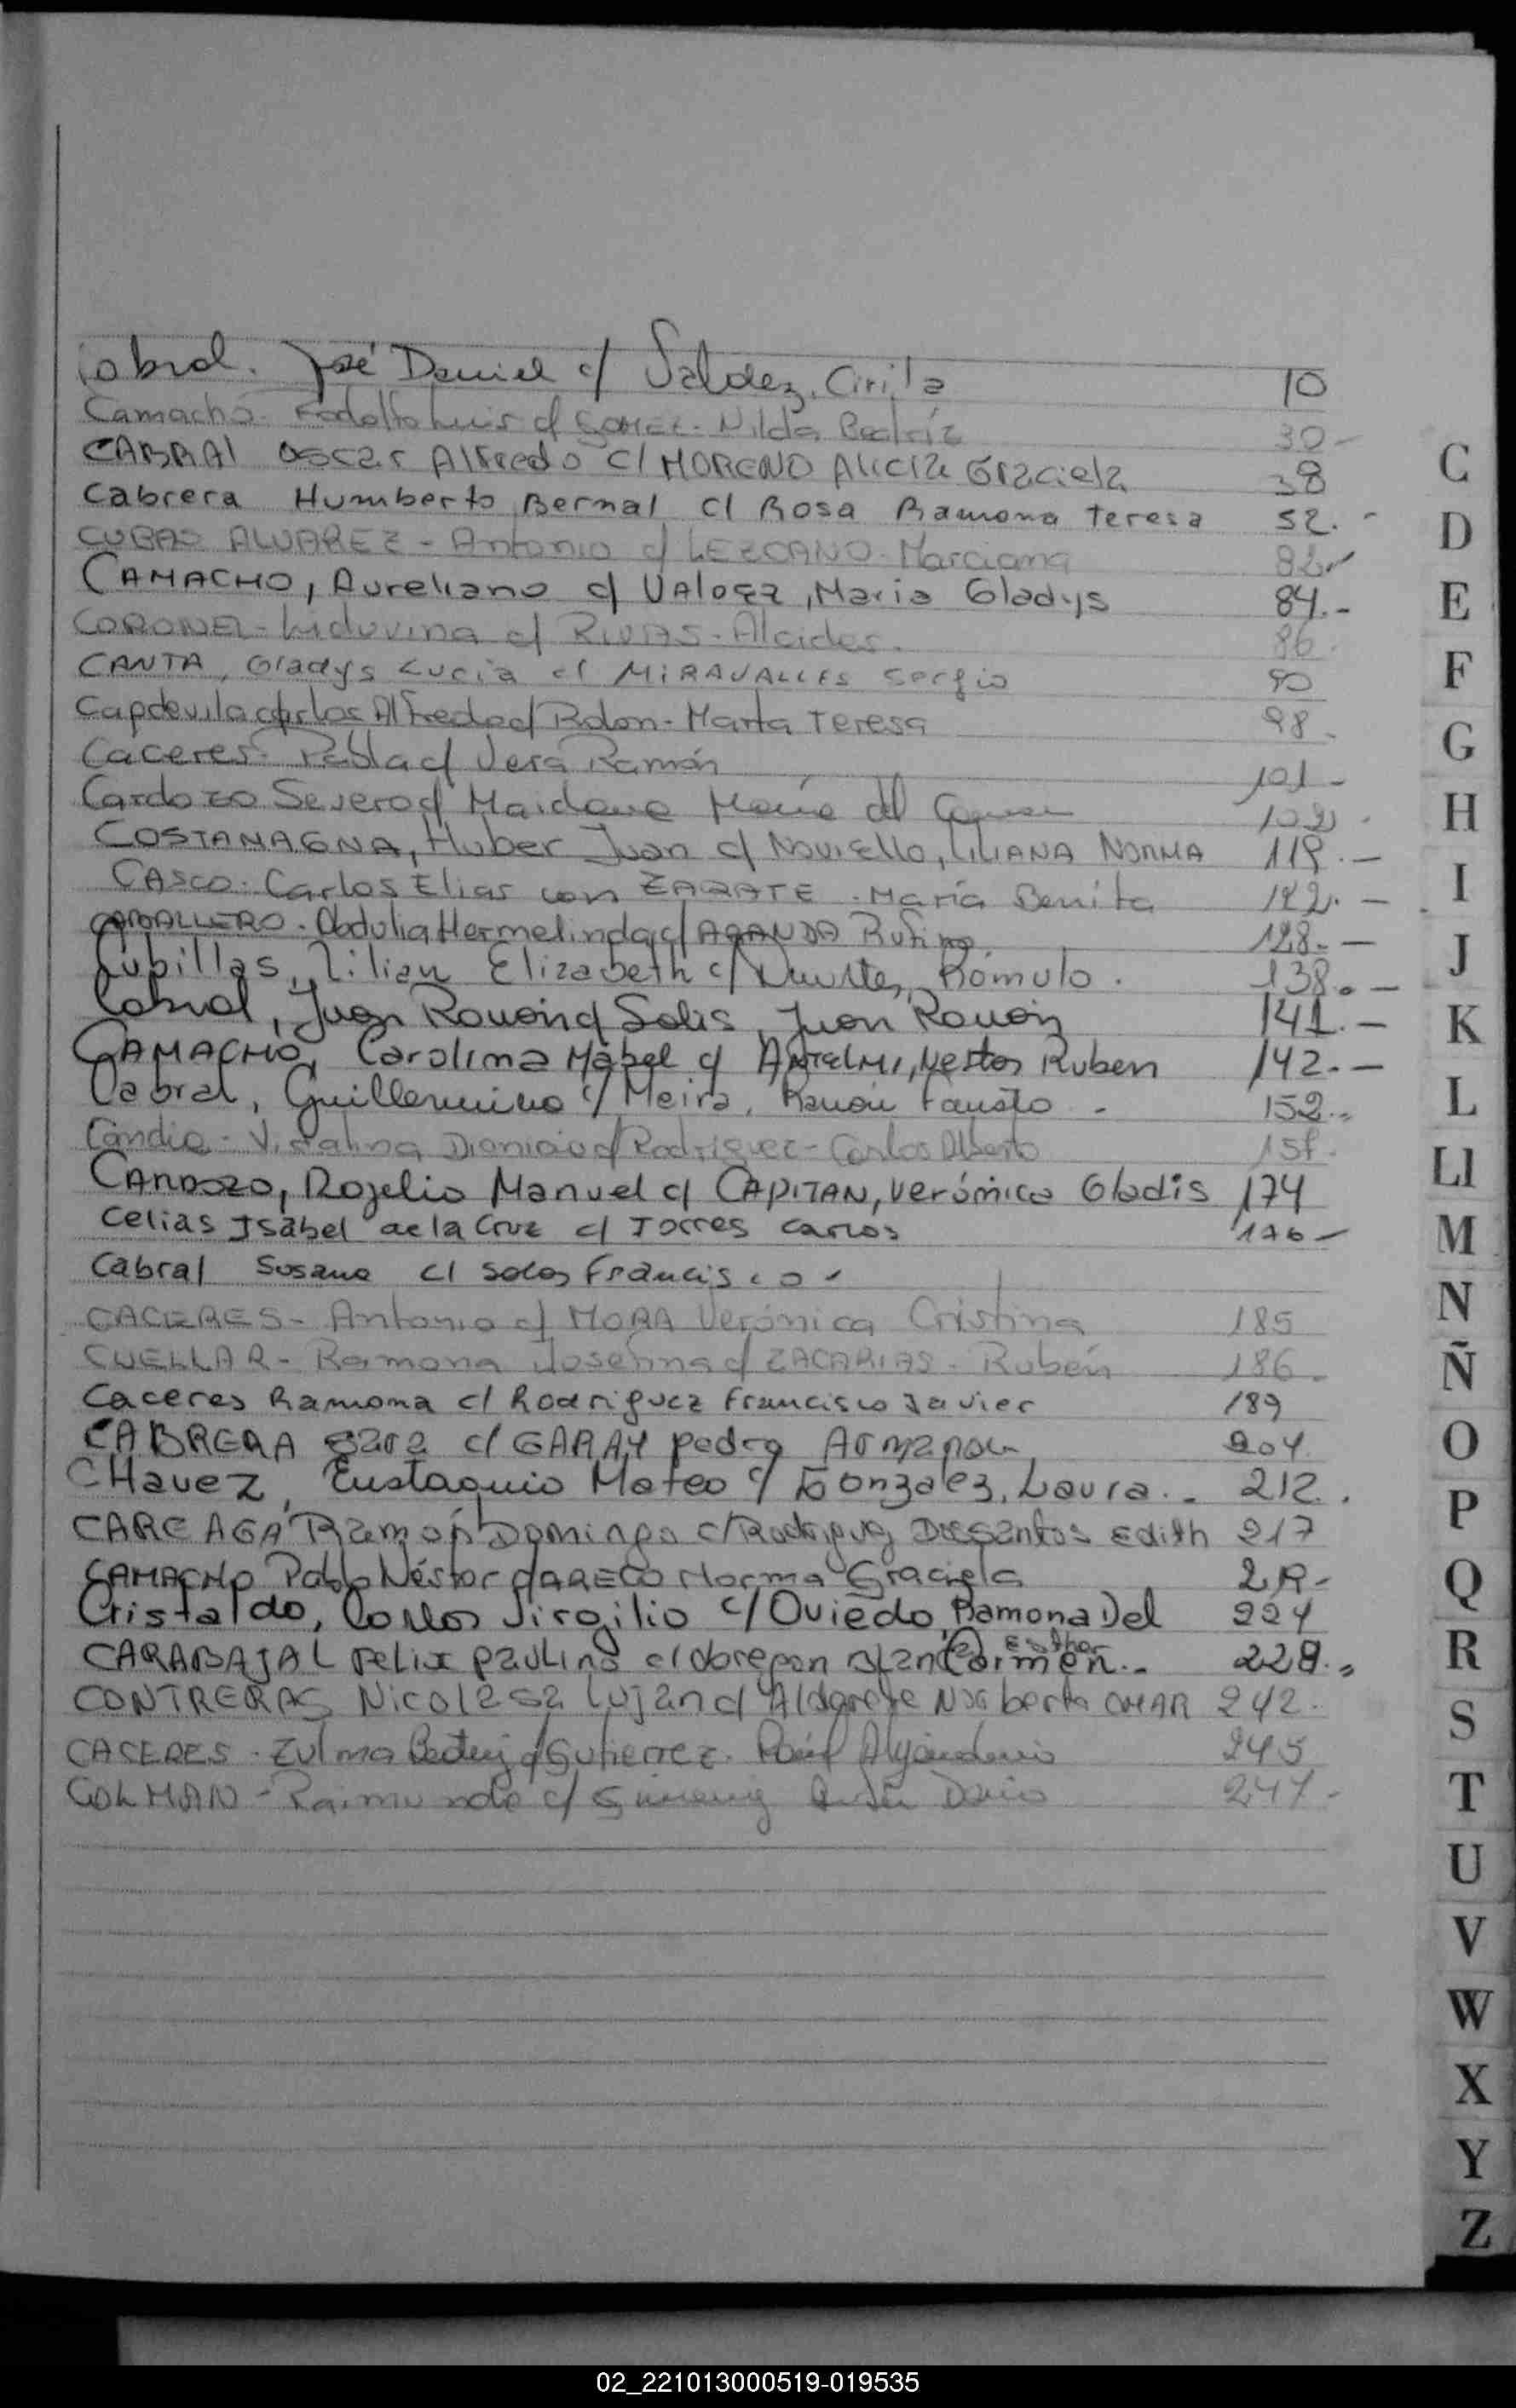 Cabral. José Daniel c/ Valdez, Cirila 10
Camacho. Rodolfo Luis c/ GOMEZ. Nilda Beatríz 30-
CABRAl OSCAr Alfredo C/ MORENO Alicia Graciela 38
Cabrera Humberto Bernal C/ Rosa Ramona Teresa 52.-
CUBAS ALVAREZ - Antonio c/ LEZCANO. Marciana 82-
CAMACHO, Aureliano c/ VALDEZ, Maria Gladys 84.-
CORONEL - Liduvina c/ RIVAS - Alcides. 86.
CANTA, Gladys Lucia c/ MIRAVALLES Sergio 90
Capdevila Carlos Alfredo c/ Rolon - Marta Teresa 98.
Caceres. Pabla c/ Vera Ramón 101-
Cardozo Severo c/ Maidana María del Carmen 102.
COSTAMAGNA, Huber Juan c/ NOVIELLO, LILIANA NORMA 119.-
CASCO. Carlos Elias con ZARATE. María Benita 122.-
CABALLERO. Obdulia Hermelinda c/ ARANDA Rufino 128.-
Cubillas, Lilian Elizabeth c/ Duarte, Rómulo. 138.-
Cabral, Juan Ramón c/ Solis, Juan Ramón 141.-
CAMACHO, Carolina Mabel c/ ANTELMI, Nestor Ruben 142.-
Cabral, Guillermina c/ Meira, Ramón Fausto. 152..
Candia - Vistalina Dionicia c/ Rodriguez - Carlos Alberto
CARDOZO, Rogelio Manuel c/ CAPITAN, Verónica Gladis 174
Celias Isabel de la Cruz c/ Torres Carlos 176-
Cabral Susana C/ Solos Francisco
CACERES - Antonio c/ MORA Verónica Cristina 185
CUELLAR - Ramona Josefina c/ ZACARIAS - Rubén 186.
Caceres Ramona c/ Rodriguez Francisco Javier 189
CABRERA Sara c/ GARAY Pedro Armando 204
CHavez, Eustaquio Mateo c/ Gonzalez, Laura.. 212.
CAREAGA Ramón Domingo c/ Rodriguez Edith 217
CAMACHO Pablo Néstor c/ ARECO Norma Graciela
Cristaldo, Carlos Virgilio c/ Oviedo, Ramona Del 224
Carmen.. Esther
CARABAJAL Felix Paulino c/ Obregon 228..
CONTRERAS Nicolasa Lujan c/ Alderete Norberto OMAR 242.
CACERES. Zulma Beatriz c/ Gutierrez. 245
COLMAN - Raimundo c/ Dario 247-
C
D
E
F
G
H
I
J
K
L
Ll
M
N
Ñ
O
P
Q
R
S
T
U
V
W
X
Y
Z
02_221013000519-019535